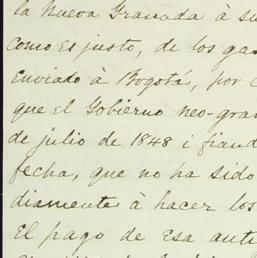 la Nueva Granada à su
como es justo, de los gas
enviado à Bogotá, por
que el Gobierno neo-gran
de julio de 1848 i fiand
fecha, que no ha sido
diamente à hacer los
El pago de esa anti